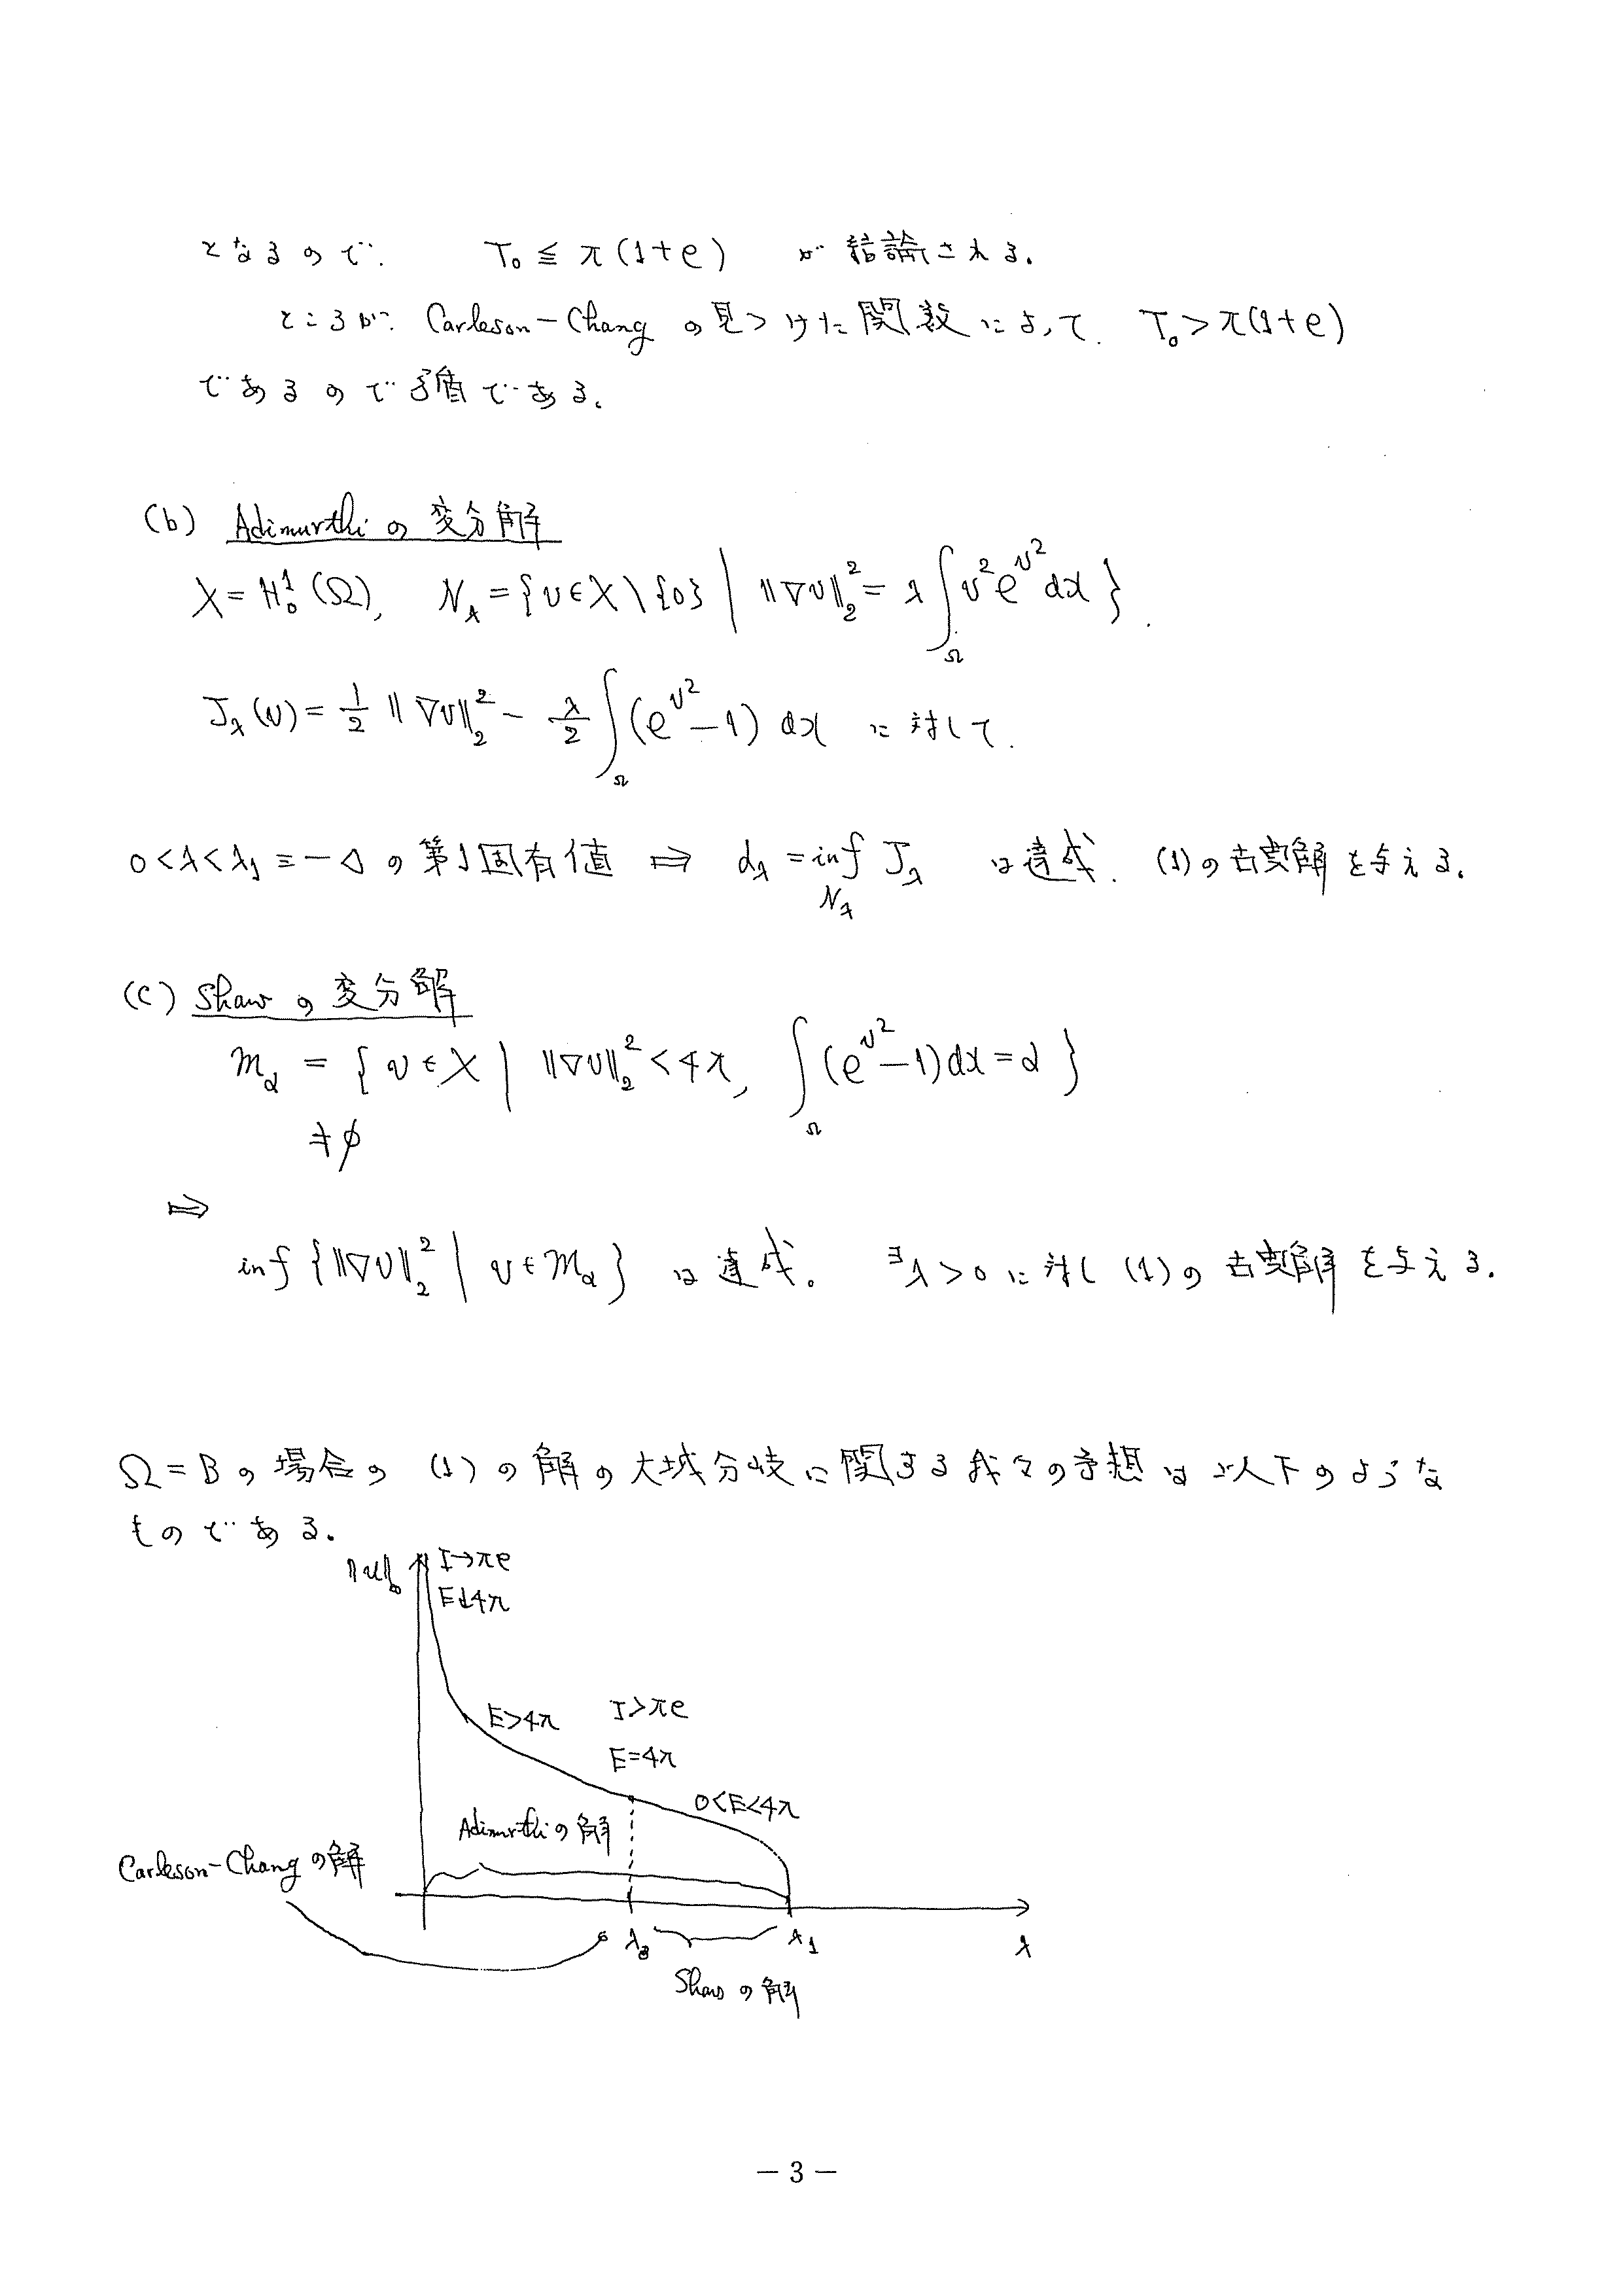 となるので、 T₀ ≦ π(1+e) が結論される。
ところが、Carleson-Chang の見つけた関数によって、T₀ > π(1+e)
であるので矛盾である。
(b) Adimurthi の変分解
X = H¹₀(Ω), N_λ = {v ∈ X \ {0} | ‖∇v‖₂² = λ∫_Ω v² e^{v²} dx}.
J_λ(v) = 1/2 ‖∇v‖₂² − λ/2 ∫_Ω (e^{v²} − 1) dx に対して、
0 < λ < λ₁ ≡ −Δ の第1固有値 ⇒ d_λ = inf_{N_λ} J_λ は達成、(1)の古典解を与える。
(c) Shaw の変分解
m_α = {v ∈ X | ‖∇v‖₂² < 4π, ∫_Ω (e^{v²} − 1) dx = α}
≠ ∅
⇒
inf {‖∇v‖₂² | v ∈ m_α} は達成。 ∃λ > 0 に対し (1)の古典解を与える。
Ω = B の場合の (1) の解の大域分岐に関する我々の予想は以下のような
ものである。
‖u‖∞ I→πe
E↓4π
E>4π I>πe
E=4π
0<E<4π
Adimurthi の解
Carleson-Chang の解
λ₀ λ₁ λ
Shaw の解
— 3 —